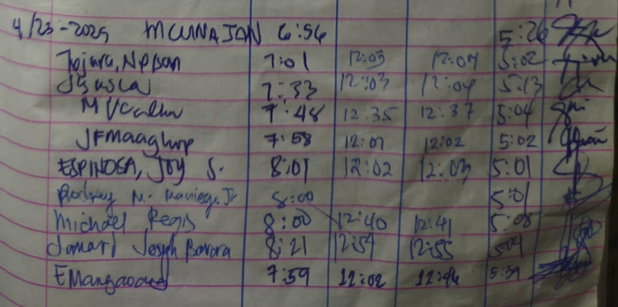 4/23-2025 MCUNAJON 6:56 5:26
Tojara, Nelson 7:01 12:03 12:04 5:02
7:33 12:03 12:04 5:13
7:48 12:35 12:37 5:04
JFMaaghop 7:58 12:01 12:02 5:02
ESPINOSA, JOY S. 8:01 12:02 12:03 5:01
Rodney M. Maniego Jr 8:00 5:01
Michael Regis 8:00 12:40 12:41 5:08
Jamari Joseph Barora 8:21 12:54 12:55 5:04
EMangaoang 7:59 12:02 12:44 5:39